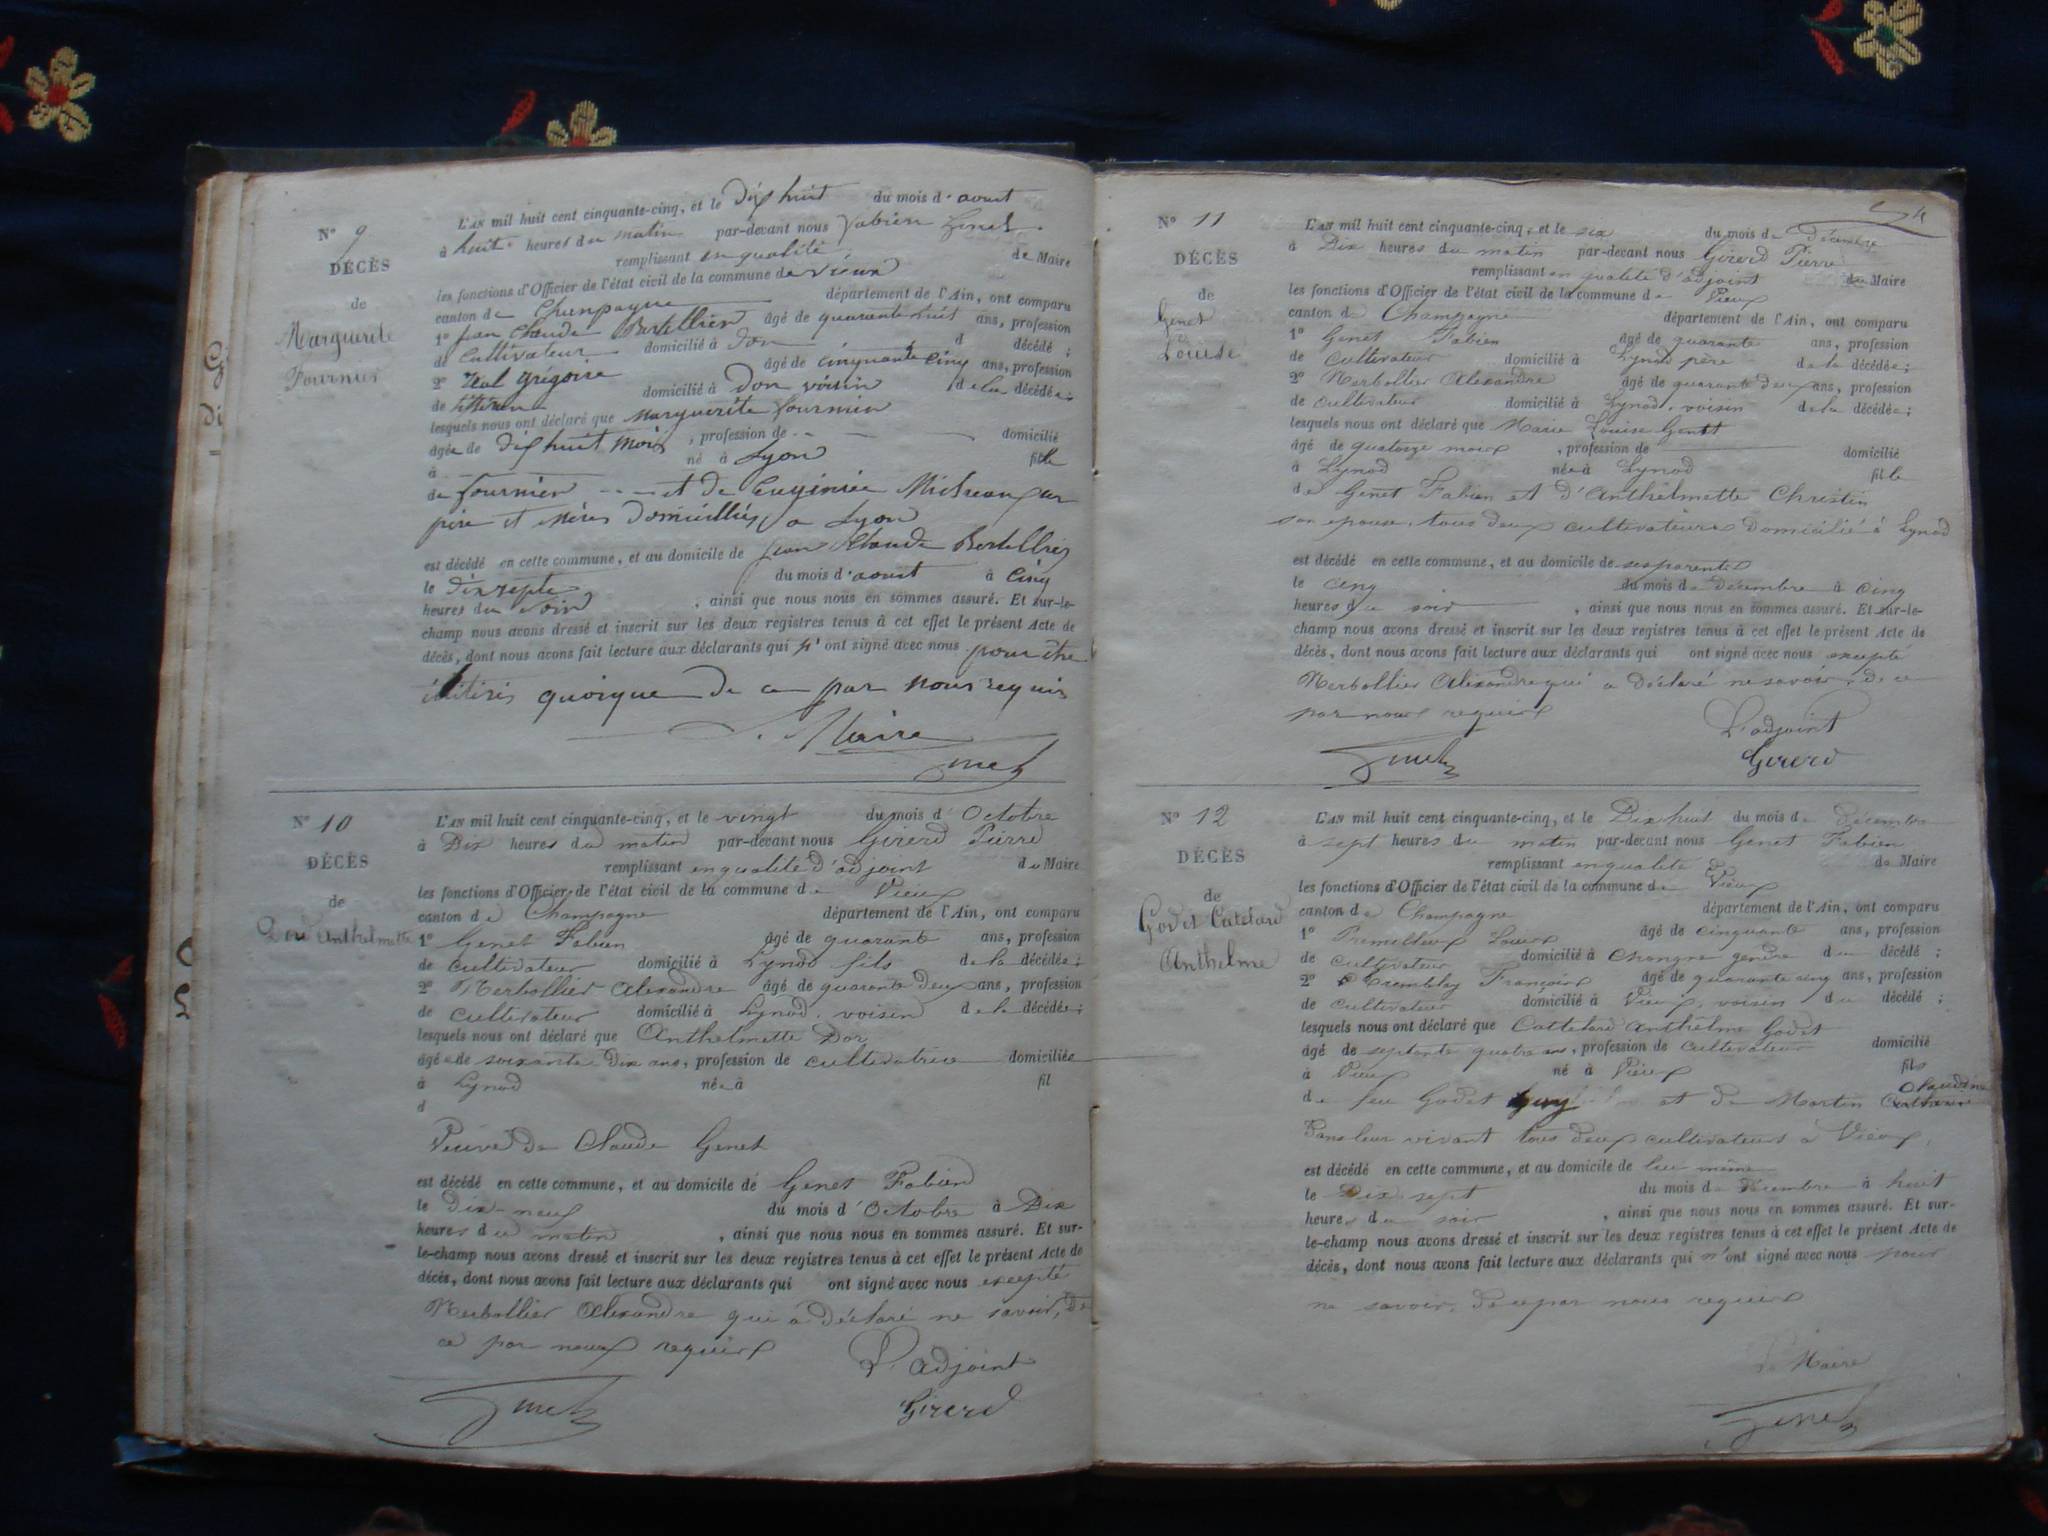 N° 9
DÉCÈS
de
Marguerite
Fournier
L'AN mil huit cent cinquante-cinq, et le dix huit du mois d'aout
à huit heures du matin par-devant nous Fabien Genet
remplissant en qualité de Maire
les fonctions d'Officier de l'état civil de la commune de vieux
canton de Champagne département de l'Ain, ont comparu
1° jean Claude Bertellier âgé de quarante huit ans, profession
de Cultivateur domicilié à don d décédé ;
2° grégoire âgé de cinquante cinq ans, profession
de domicilié à don voisin de la décédée;
lesquels nous ont déclaré que marguerite fournier
âgée de dix huit mois, profession de domicilié
à né à Lyon fille
de fournier et de
père et mère domiciliés a Lyon
est décédé en cette commune, et au domicile de jean Claude
le dix sept du mois d'aout à cinq
heures du soir, ainsi que nous nous en sommes assuré. Et sur-le-
champ nous avons dressé et inscrit sur les deux registres tenus à cet effet le présent Acte de
décès, dont nous avons fait lecture aux déclarants qui n'ont signé avec nous pour être
quoique de ce par nous requis
Maire
Genet
N° 10
DÉCÈS
de
Anthelmette
L'AN mil huit cent cinquante-cinq, et le vingt du mois d'Octobre
à Dix heures du matin par-devant nous Girerd Pierre
remplissant en qualité d'adjoint du Maire
les fonctions d'Officier de l'état civil de la commune de Vieux
canton de Champagne département de l'Ain, ont comparu
1° Genet Fabien âgé de quarante ans, profession
de cultivateur domicilié à Lynod fils de la décédée;
2° Merbollier Alexandre âgé de quarante deux ans, profession
de cultivateur domicilié à Lynod, voisin de la décédée;
lesquels nous ont déclaré que Anthelmette
âgée de soixante Dix ans, profession de cultivatrice domiciliée
à Lynod née à fil
d
Veuve de Claude Genet
est décédé en cette commune, et au domicile de Genet Fabien
le dix-neuf du mois d'Octobre à Dix
heures du matin, ainsi que nous nous en sommes assuré. Et sur-
le-champ nous avons dressé et inscrit sur les deux registres tenus à cet effet le présent Acte de
décès, dont nous avons fait lecture aux déclarants qui ont signé avec nous excepté
Merbollier Alexandre qui a déclaré ne savoir, de
ce par nous requis
L'adjoint
Genet Girerd
N° 11
DÉCÈS
de
Genet
Louise
L'AN mil huit cent cinquante-cinq, et le six du mois de Décembre
à Dix heures du matin par-devant nous Girerd Pierre
remplissant en qualité d'adjoint du Maire
les fonctions d'Officier de l'état civil de la commune de Vieux
canton de Champagne département de l'Ain, ont comparu
1° Genet Fabien âgé de quarante ans, profession
de cultivateur domicilié à Lynod père de la décédée;
2° Merbollier Alexandre âgé de quarante deux ans, profession
de cultivateur domicilié à Lynod, voisin de la décédée;
lesquels nous ont déclaré que Marie Louise Genet
âgé de quatorze mois, profession de domicilié
à Lynod née à Lynod fille
de Genet Fabien et d'Anthelmette Christin
son epouse, tous deux cultivateurs domicilié à Lynod
est décédé en cette commune, et au domicile de ses parents
le cinq du mois de décembre à cinq
heures du soir, ainsi que nous nous en sommes assuré. Et sur-le-
champ nous avons dressé et inscrit sur les deux registres tenus à cet effet le présent Acte de
décès, dont nous avons fait lecture aux déclarants qui ont signé avec nous excepté
Merbollier Alexandre qui a déclaré ne savoir, de ce
par nous requis
L'adjoint
Genet Girerd
N° 12
DÉCÈS
de
Godet Catelard
Anthelme
L'AN mil huit cent cinquante-cinq, et le Dix huit du mois de Décembre
à sept heures du matin par-devant nous Genet Fabien
remplissant en qualité de Maire
les fonctions d'Officier de l'état civil de la commune de Vieux
canton de Champagne département de l'Ain, ont comparu
1° Louis âgé de cinquante ans, profession
de cultivateur domicilié à Chongne gendre du décédé ;
2° Tremblay François âgé de quarante cinq ans, profession
de cultivateur domicilié à Vieux, voisin du décédé ;
lesquels nous ont déclaré que Cattelard Anthelme Godet
âgé de septante quatre ans, profession de Cultivateur domicilié
à Vieux né à Vieux fils
de feu Godet Guy et de Martin Claudine
Dans leur vivant tous deux cultivateurs à Vieux,
est décédé en cette commune, et au domicile de lui même
le Dix sept du mois de Décembre à huit
heures du soir, ainsi que nous nous en sommes assuré. Et sur-
le-champ nous avons dressé et inscrit sur les deux registres tenus à cet effet le présent Acte de
décès, dont nous avons fait lecture aux déclarants qui n'ont signé avec nous pour
ne savoir, de ce par nous requis
Le Maire
Genet